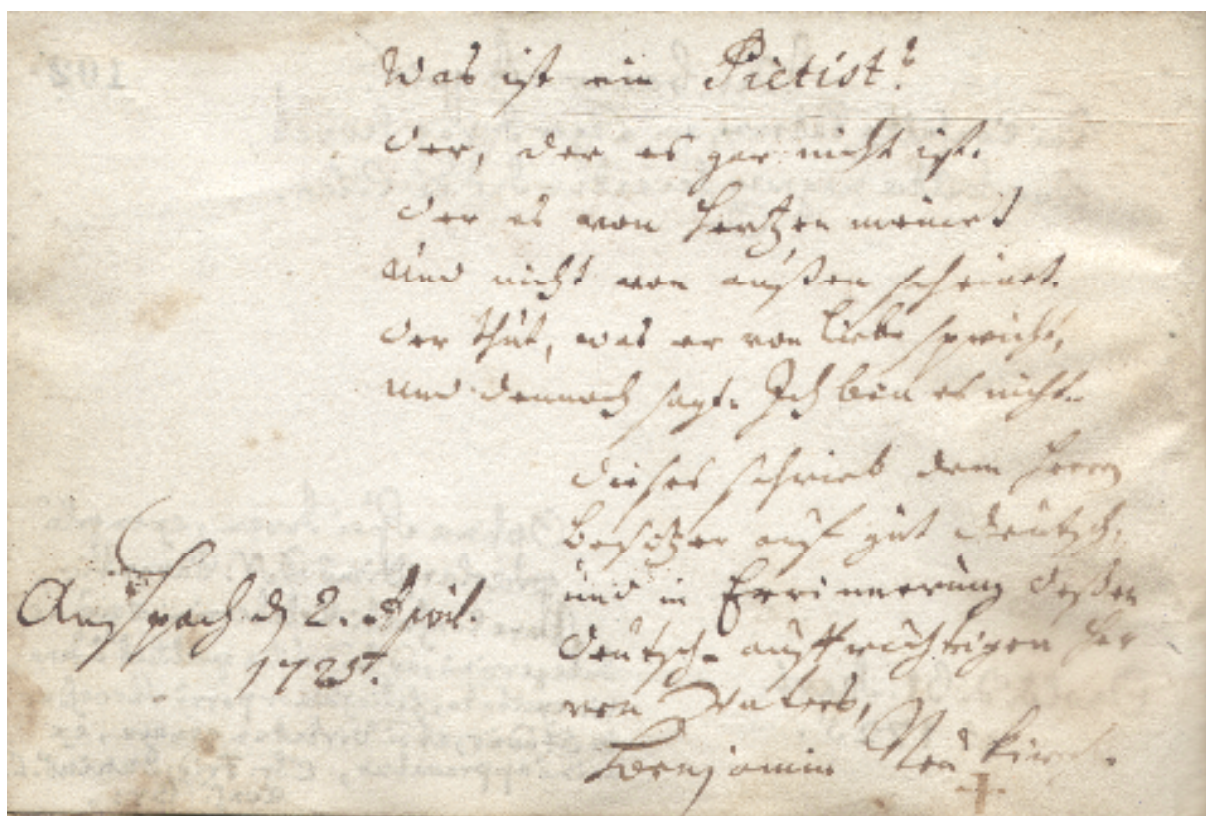 Was ist ein Pietist?
Der, der es gar nicht ist.
Der es von Hertzen meinet
Und nicht von außen scheinet.
Der thut, was er von Liebe spricht,
und dennoch sagt. Ich bin es nicht.
Dieses schrieb dem Herrn
Besitzer auf gut Deutsch,
und in Errinnerung deßen
Deutsch-auffrichtigen Her
ren Vaters,
Benjamin Neukirch.
Anspach d 2. April.
1725.